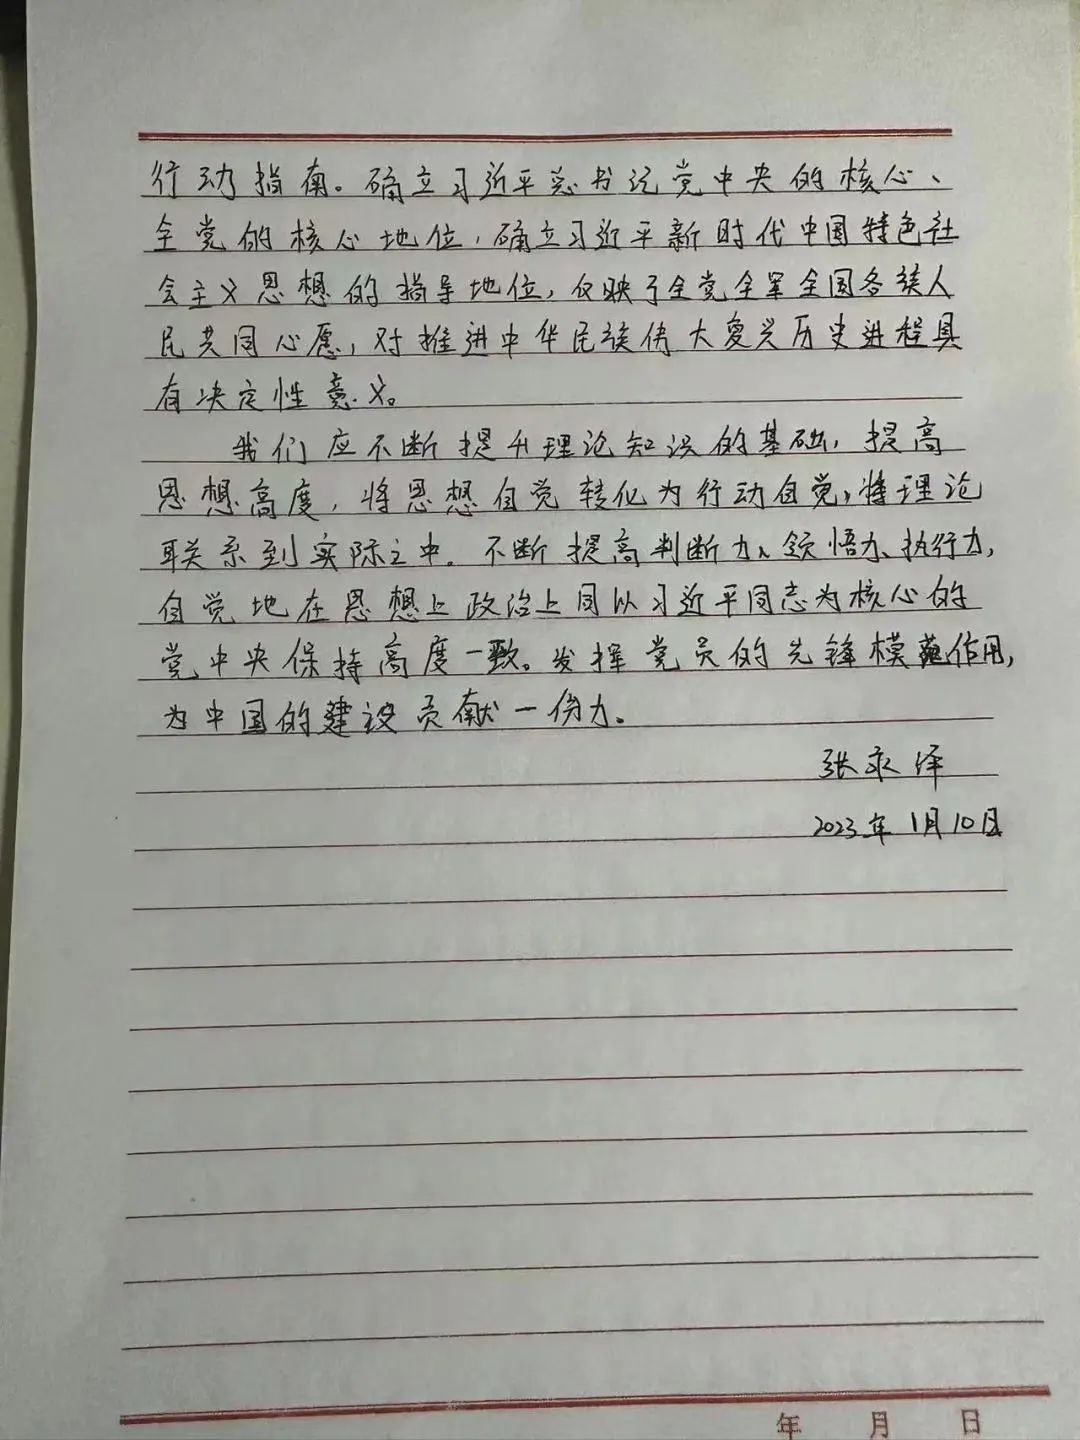 行动指南。确立习近平总书记党中央的核心、
全党的核心地位，确立习近平新时代中国特色社
会主义思想的指导地位，反映了全党全军全国各族人
民共同心愿，对推进中华民族伟大复兴历史进程具
有决定性意义。
我们应不断提升理论知识的基础，提高
思想高度，将思想自觉转化为行动自觉，将理论
联系到实际之中。不断提高判断力、领悟力、执行力，
自觉地在思想上政治上同以习近平同志为核心的
党中央保持高度一致。发挥党员的先锋模范作用，
为中国的建设贡献一份力。
张永泽
2023年1月10日
年 月 日